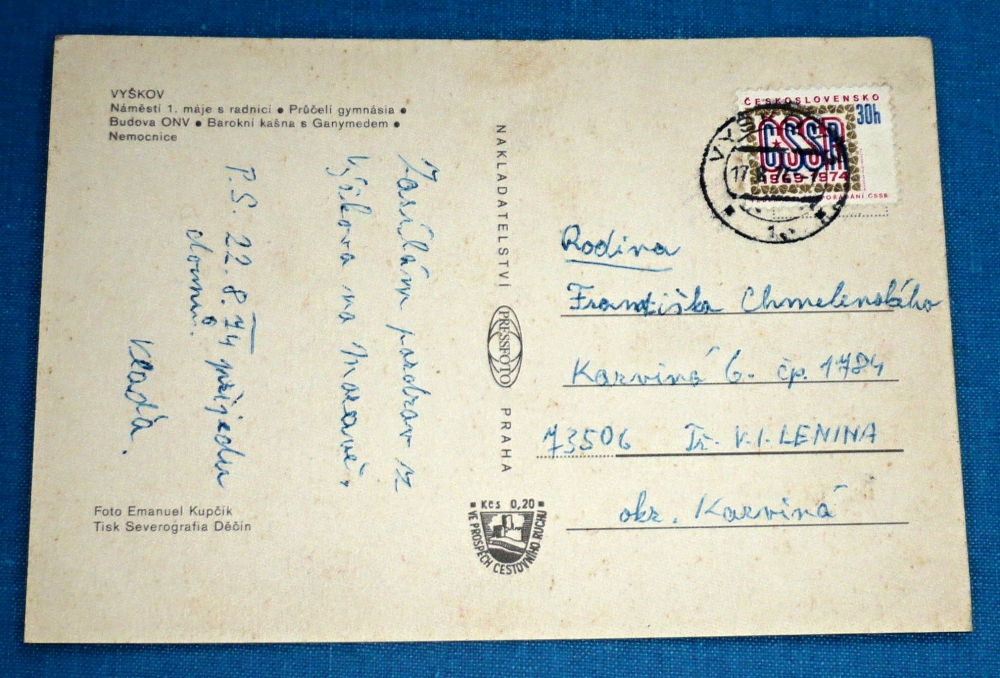 VYŠKOV
Náměstí 1. máje s radnicí • Průčelí gymnásia •
Budova ONV • Barokní kašna s Ganymedem •
Nemocnice
Zasílám pozdrav z
Vyškova na Moravě.
P.S. 22.8.74 přijedu
domů.
Vlaďa.
Foto Emanuel Kupčík
Tisk Severografia Děčín
NAKLADATELSTVÍ PRESSFOTO PRAHA
Kčs 0,20
VE PROSPĚCH CESTOVNÍHO RUCHU
ČESKOSLOVENSKO
30h
ČSSR
1969-1974
VYŠ
17.
1
Rodina
Františka Chmelenského
Karviná 6. čp. 1784
73506 Tř. V.I. LENINA
okr. Karviná